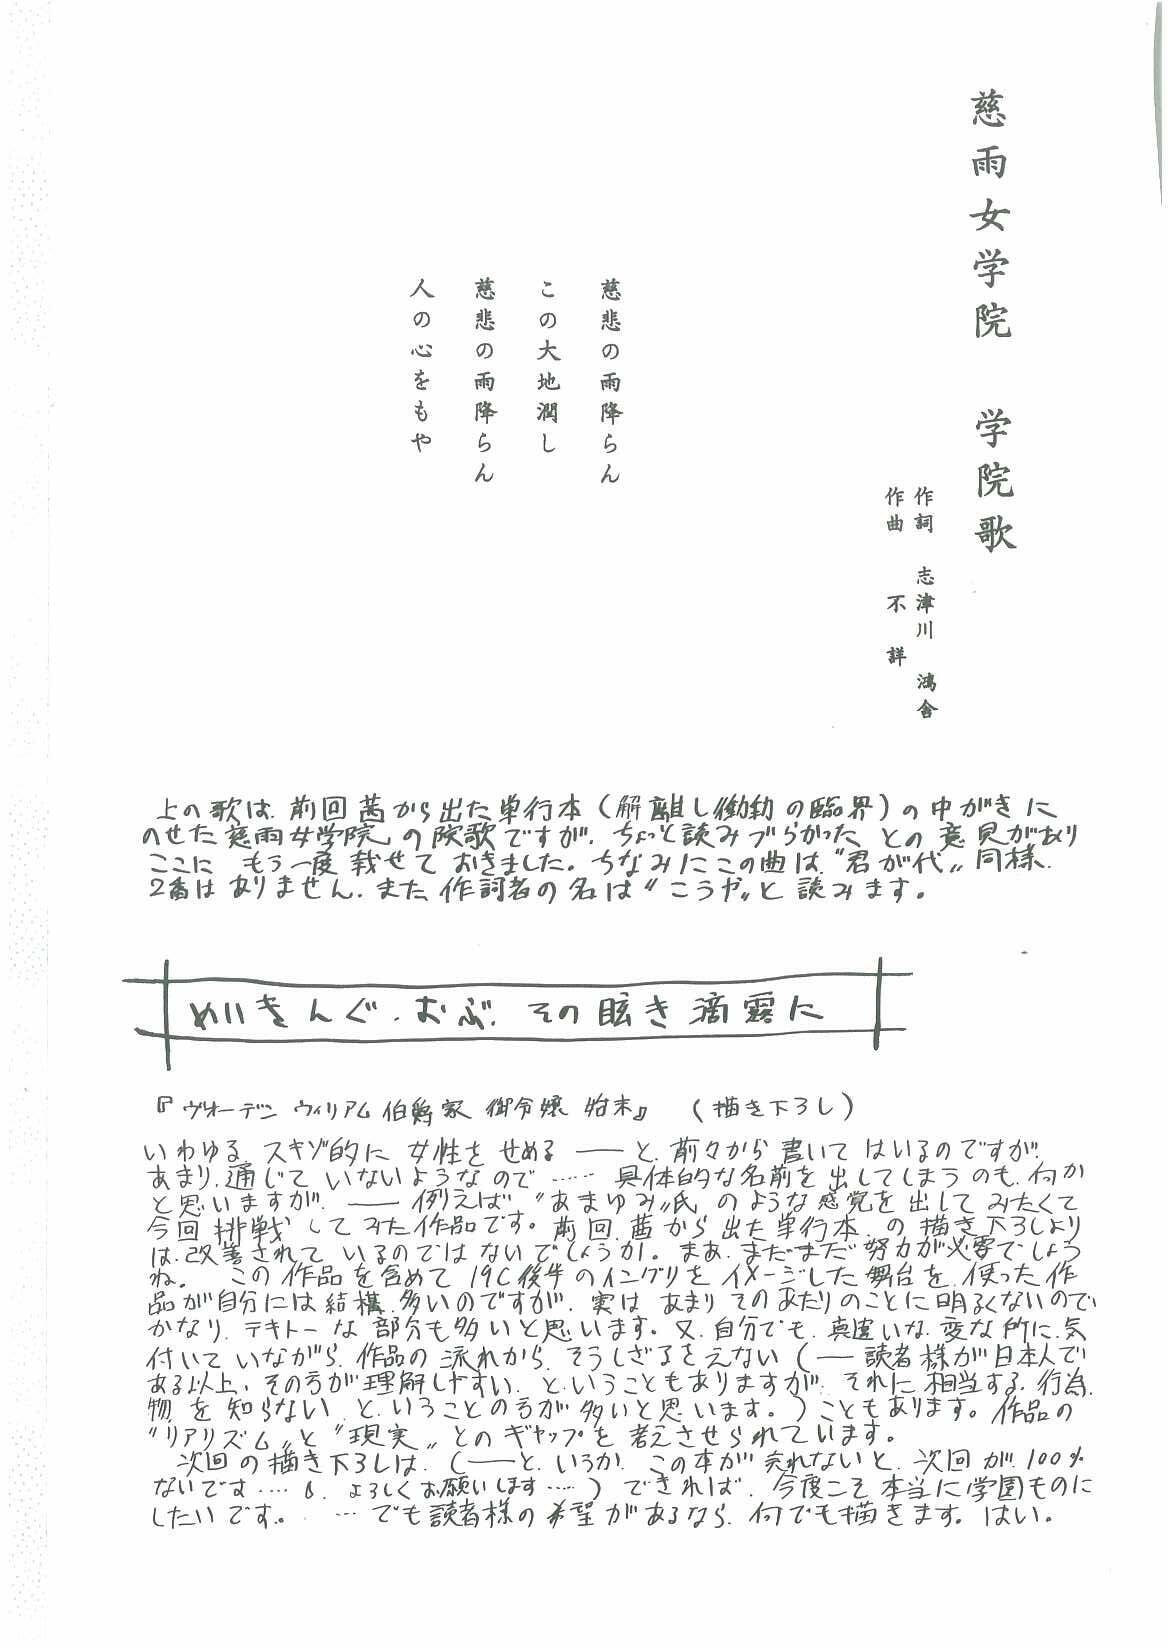 慈雨女学院　学院歌
作詞　志津川　鴻舎
作曲　不詳
慈悲の雨降らん
この大地潤し
慈悲の雨降らん
人の心をもや
上の歌は、前回茜から出た単行本（解離し慟動の臨界）の中がきに
のせた慈雨女学院の院歌ですが、ちょっと読みづらかったとの意見があり
ここに もう一度載せておきました。ちなみにこの曲は〝君が代〟同様、
2番はありません。また、作詞者の名は〝こうや〟と読みます。
めいきんぐ・おぶ・その眩き滴露に
『ヴォーデン ウィリアム伯爵家 御令嬢 始末』　（描き下ろし）
いわゆる、スキゾ的に 女性を せめる ── と、前々から書いて はいるのですが、
あまり、通じて いないようなので …… 具体的な名前を出してしまうのも、何か
と思いますが、── 例えば〝あまゆみ〟氏 のような感覚を出して みたくて
今回 挑戦 してみた作品です。前回、茜から出た単行本、の描き下ろしより
は、改善されて いるのではないでしょうか。まあ、まだまだ努力が必要でしょう
ね。　この作品を含めて 19C後半のイングリを イメージした舞台を、使った作
品が自分には結構、多いのですが、実は あまり そのあたりのことに明るくないので
かなり、テキトーな部分も多いと思います。又、自分でも、真違いな、変な所に、気
付いて いながら、作品の 流れから、そうしざるをえない（ ── 読者様が日本人で
ある以上、その方が理解しやすい、と、いうこともありますが、それに相当する、行為、
物、を 知らない、と、いうことの方が多いと思います。）こともあります。作品の
〝リアリズム〟と〝現実〟とのギャップを 考えさせられています。
次回の描き下ろしは、（ ── と、いうか、この本が 売れないと、次回が、100%
ないです ……。よろしくお願いします ……）できれば、今度こそ本当に学園ものに
したいです。 …… でも読者様の希望があるなら、何でも描きます。はい。